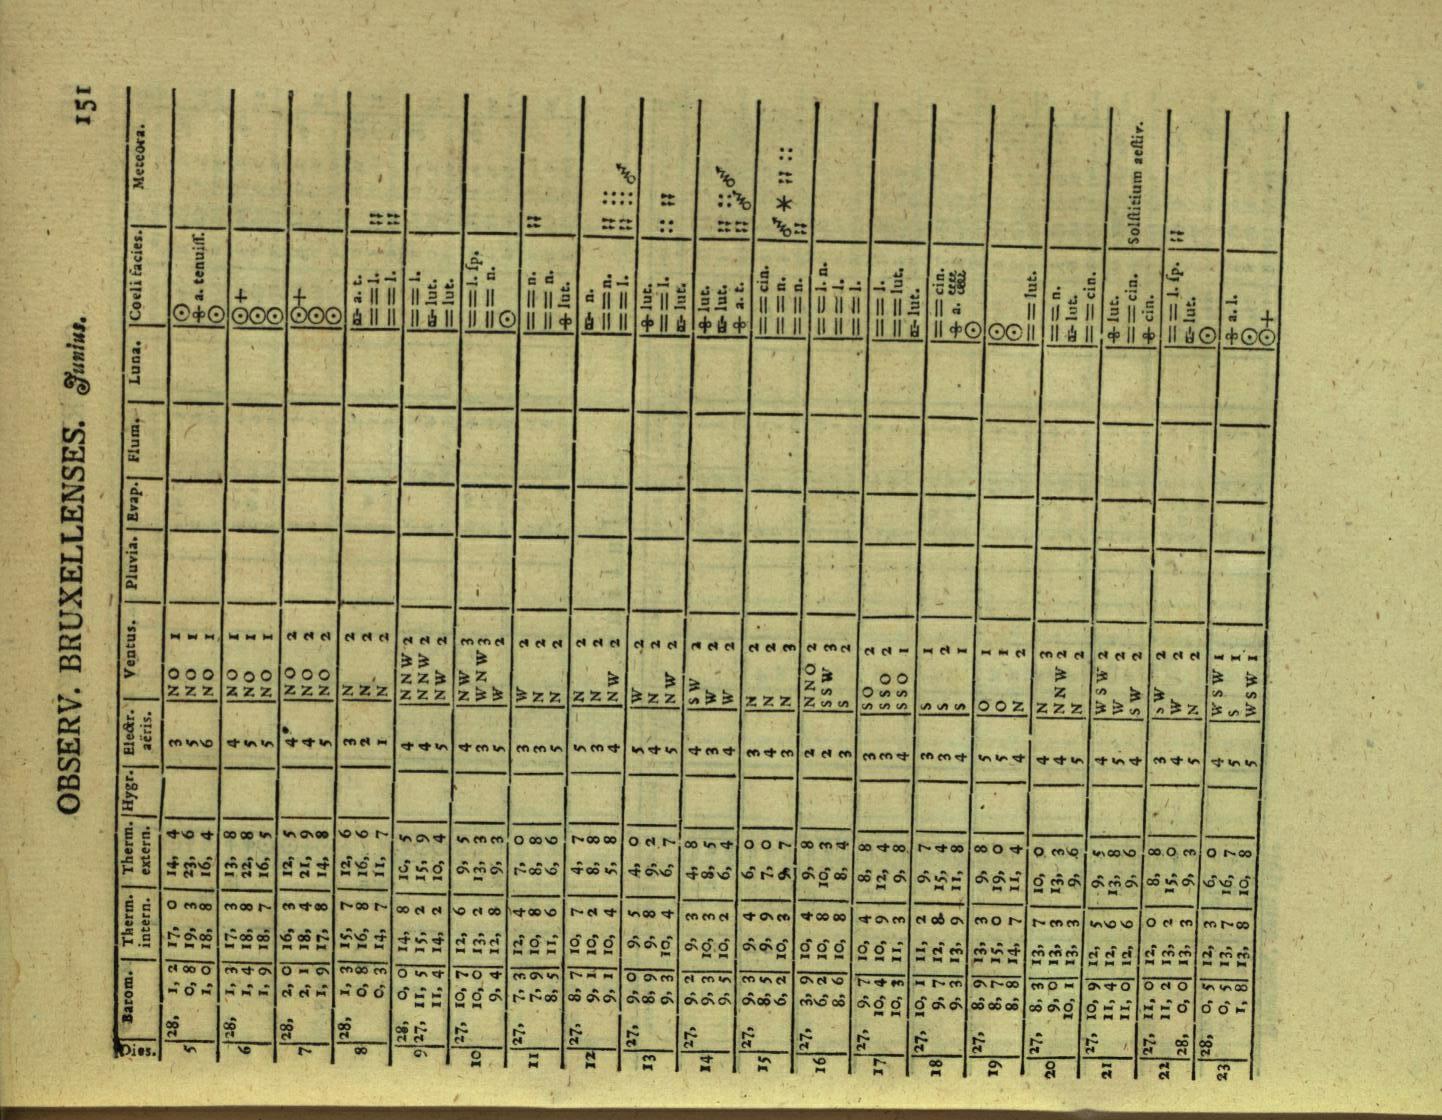 OBSERV. BRUXELLENSES. Junius. 151
Dies. Barom. Therm. intern. Therm. extern. Hygr. Electr. aëris. Ventus. Pluvia. Evap. Flum. Luna. Coeli facies. Meteora.
5 28, 1, 2 17, 0 14, 4 3 NO 1 ☉
0, 8 19, 3 23, 6 5 NO 1 a. tenuiſſ.
1, 0 18, 8 16, 4 6 NO 1 ☉
6 28, 1, 3 17, 3 13, 8 4 NO 1 ☉+
1, 4 18, 8 22, 8 5 NO 1 ☉
1, 9 18, 7 16, 5 5 NO 1 ☉
7 28, 2, 0 16, 3 12, 5 4 NO 2 ☉+
2, 1 18, 4 21, 9 4 NO 2 ☉
1, 9 17, 8 14, 8 5 NO 2 ☉
8 28, 1, 3 15, 7 12, 6 3 N 2 a. t.
0, 8 16, 8 16, 6 2 N 2 == l. ::
0, 3 14, 7 11, 7 1 N 2 == l. ::
9 28, 0, 0 14, 8 10, 5 4 NNW 2 == l.
27, 11, 5 15, 2 15, 9 4 NNW 2 lut.
11, 4 14, 2 10, 4 5 NW 2 == lut.
10 27, 10, 7 12, 6 9, 5 4 NW 3 == l. ſp.
10, 0 13, 2 13, 3 3 WNW 3 == n.
9, 4 12, 8 9, 3 5 W 2 ☉
11 27, 7, 3 12, 4 7, 0 3 W 2 == n. ::
7, 9 10, 8 8, 8 3 N 2 == n.
8, 5 11, 6 6, 6 5 N 2 lut.
12 27, 8, 7 10, 7 4, 7 5 N 2 n.
9, 1 10, 2 8, 8 3 N 2 == n. :: ::
9, 1 10, 4 5, 8 4 NW 2 == l. :: ::
13 27, 9, 0 9, 5 4, 0 5 W 2 lut.
8, 9 9, 8 9, 2 4 N 2 == l. :: ::
9, 3 10, 4 6, 7 5 NW 2 lut.
14 27, 9, 2 9, 3 4, 8 4 SW 2 lut.
9, 3 10, 3 8, 5 3 W 2 lut. :: ::
9, 5 10, 2 6, 4 4 W 2 a. t. ::
15 27, 9, 3 9, 4 6, 0 3 N 2 == cin.
8, 5 9, 9 7, 0 4 N 2 == n. * :: ::
6, 2 10, 3 9, 7 3 N 3 == n. ::
16 27, 3, 9 10, 4 9, 8 2 NNO 2 == l. n.
6, 2 10, 8 10, 3 2 SSW 3 == l.
8, 6 10, 8 8, 4 3 S 2 == l.
17 27, 9, 7 10, 4 8, 8 3 SO 2 == l.
10, 4 10, 9 12, 4 3 SSO 2 == lut.
10, 3 11, 3 9, 8 4 SSO 1 lut.
18 27, 10, 1 11, 2 9, 7 3 S 1 == cin.
9, 7 12, 8 15, 4 3 S 2 a.
9, 3 13, 9 11, 8 4 S 1 ☉
19 27, 8, 9 13, 3 9, 8 5 O 1 ☉
8, 7 15, 0 19, 0 5 O 1 ☉
8, 8 14, 7 11, 4 4 N 2 == lut.
20 27, 8, 3 13, 7 10, 0 4 N 3 == n.
9, 0 13, 3 13, 3 4 NNW 2 lut.
10, 1 13, 3 9, 6 5 N 2 == cin.
21 27, 10, 9 12, 5 9, 5 4 WSW 2 lut.
11, 4 12, 6 13, 8 5 W 2 == cin. Solſtitium aeſtiv.
11, 0 12, 6 9, 6 4 SW 2 cin.
22 27, 11, 0 12, 0 8, 8 3 SW 2 == l. ſp. ::
11, 2 13, 2 15, 0 4 W 2 lut.
28, 0, 0 13, 3 9, 3 5 N 2 ☉
23 28, 0, 5 12, 3 6, 0 4 WSW 1 a. l.
0, 5 13, 7 16, 7 5 S 1 ☉
1, 8 13, 8 10, 8 5 WSW 1 ☉+